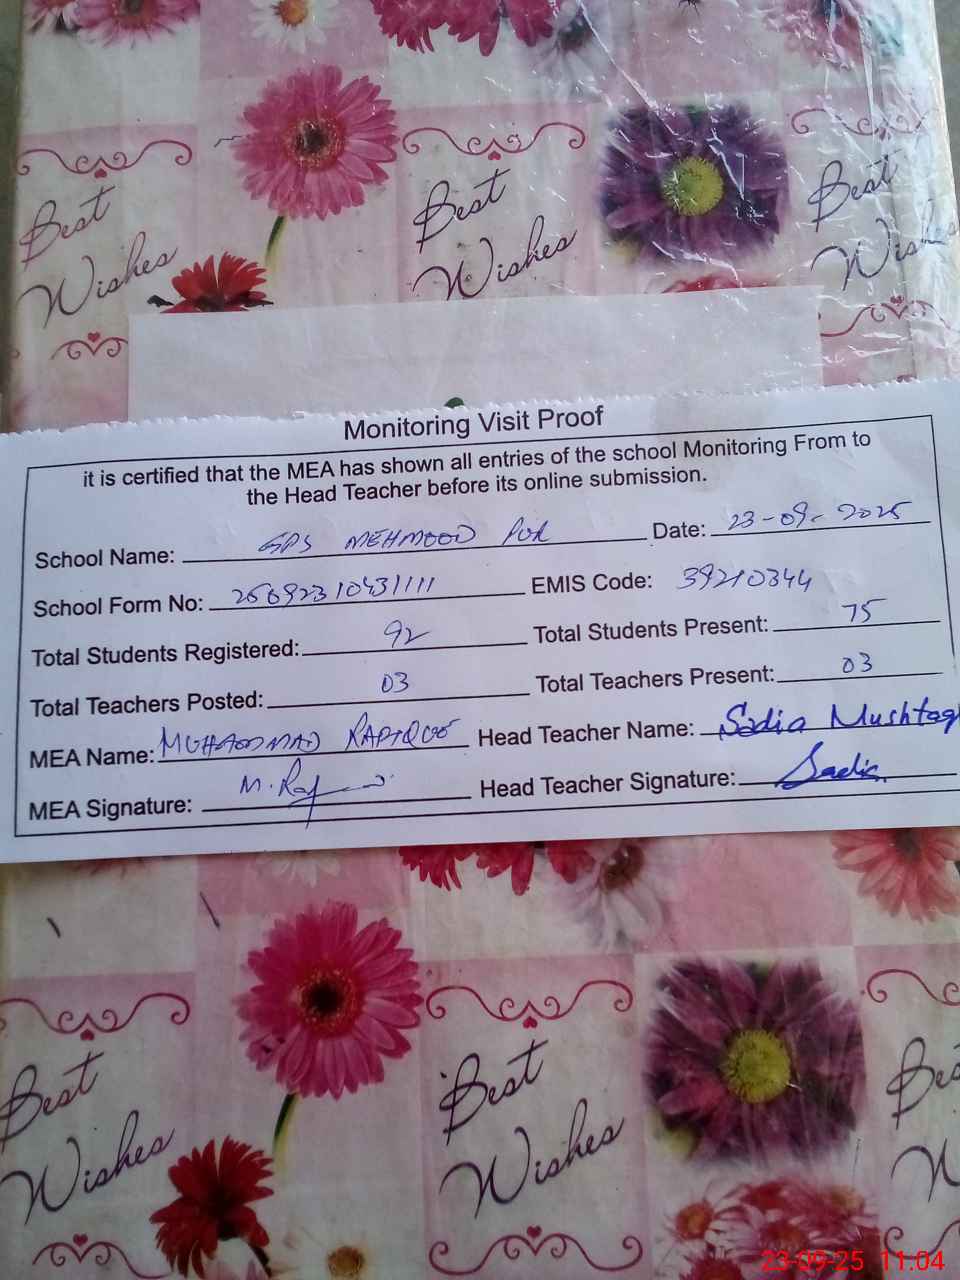 Best Wishes
Best Wishes
Best Wishes
Monitoring Visit Proof
it is certified that the MEA has shown all entries of the school Monitoring From to
the Head Teacher before its online submission.
School Name: GPS MEHMOOD PUR Date: 23-09-2025
School Form No: EMIS Code: 39210344
Total Students Registered: 92 Total Students Present: 75
Total Teachers Posted: 03 Total Teachers Present: 03
MEA Name: MUHAMMAD Head Teacher Name: Sadia Mushtaq
MEA Signature: Head Teacher Signature: Sadia
Best Wishes
Best Wishes
23-09-25 11:04